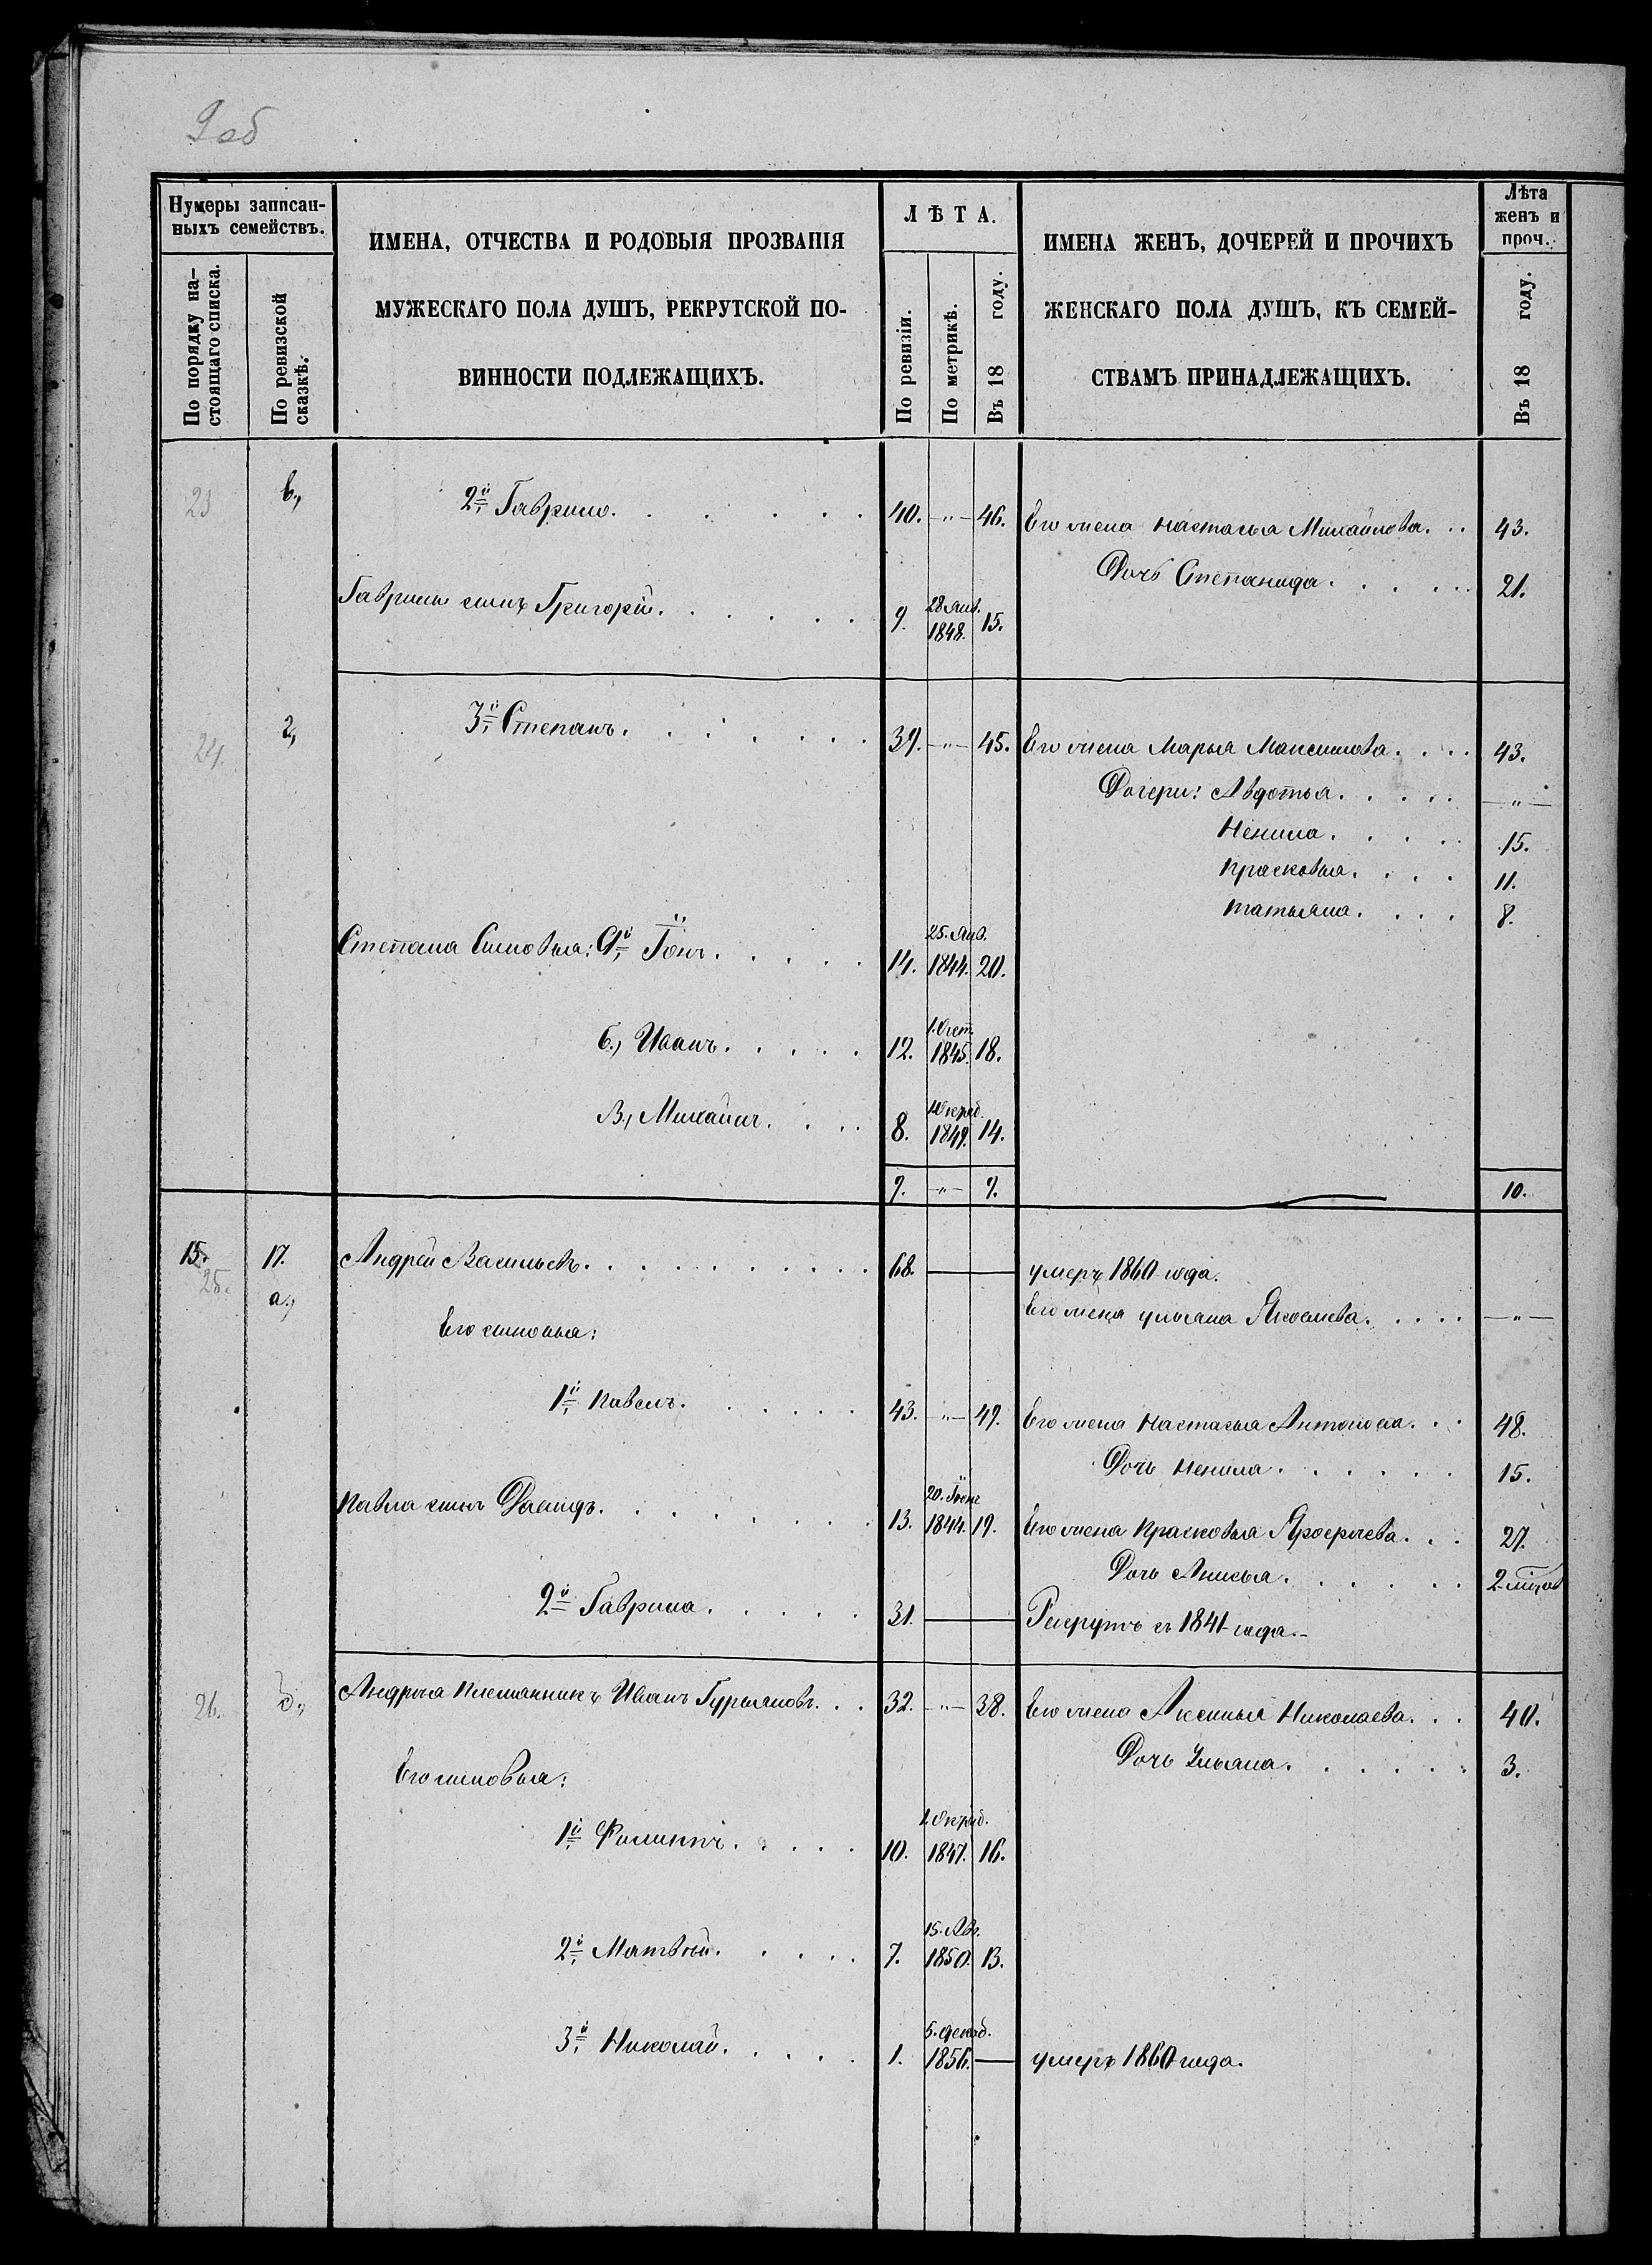 9 об
Нумеры записан-
ныхъ семействъ.
По порядку на-
стоящаго списка.
По ревизской
сказкѣ.
ИМЕНА, ОТЧЕСТВА И РОДОВЫЯ ПРОЗВАНІЯ
МУЖЕСКАГО ПОЛА ДУШЪ, РЕКРУТСКОЙ ПО-
ВИННОСТИ ПОДЛЕЖАЩИХЪ.
ЛѢТА.
По ревизіи.
По метрикѣ.
Въ 18 году.
ИМЕНА ЖЕНЪ, ДОЧЕРЕЙ И ПРОЧИХЪ
ЖЕНСКАГО ПОЛА ДУШЪ, КЪ СЕМЕЙ-
СТВАМЪ ПРИНАДЛЕЖАЩИХЪ.
Лѣта
женъ и
проч.
Въ 18 году.
23 в., 2й Гаврило. 40. —"— 46. Его жена Настасья Михайлова. 43.
Дочь Степанида. 21.
Гаврилы сынъ Григорій. 9. 28 Янв. 1848. 15.
24 г, 3й Степанъ. 39. —"— 45. Его жена Марья Максимова. 43.
Дочери: Авдотья. —"—
Ненила. 15.
Прасковья. 11.
Татьяна. 8.
Степана Сыновья: Іонъ. 14. 25. Янв. 1844. 20.
б., Иванъ. 12. 1. 1845. 18.
в., Михаилъ. 8. 1849. 14.
9. —"— 9. 10.
15. 17. Андрей Васильевъ. 68. — умеръ 1860 года.
25. а., Его жена Ульяна Яковлева. —"—
Его сыновья:
1й Павелъ. 43. —"— 49. Его жена Настасья Антонова. 48.
Дочь Ненила. 15.
Павла сынъ Давидъ. 13. 20. Іюня 1844. 19. Его жена Прасковья 27.
Дочь Анисья. 2
2й Гаврила. 31. — Рекрутъ съ 1841 года.
26. б., Андрея Племянникъ Иванъ Гурьяновъ. 32. —"— 38. Его жена Аксинья Николаева. 40.
Дочь Ульяна. 3.
Его сыновья:
1й Филиппъ. 10. 1. Октяб. 1847. 16.
2й Матвѣй. 7. 15. Авг. 1850. 13.
3й Николай. 1. 5. декаб. 1856. — умеръ 1860 года.